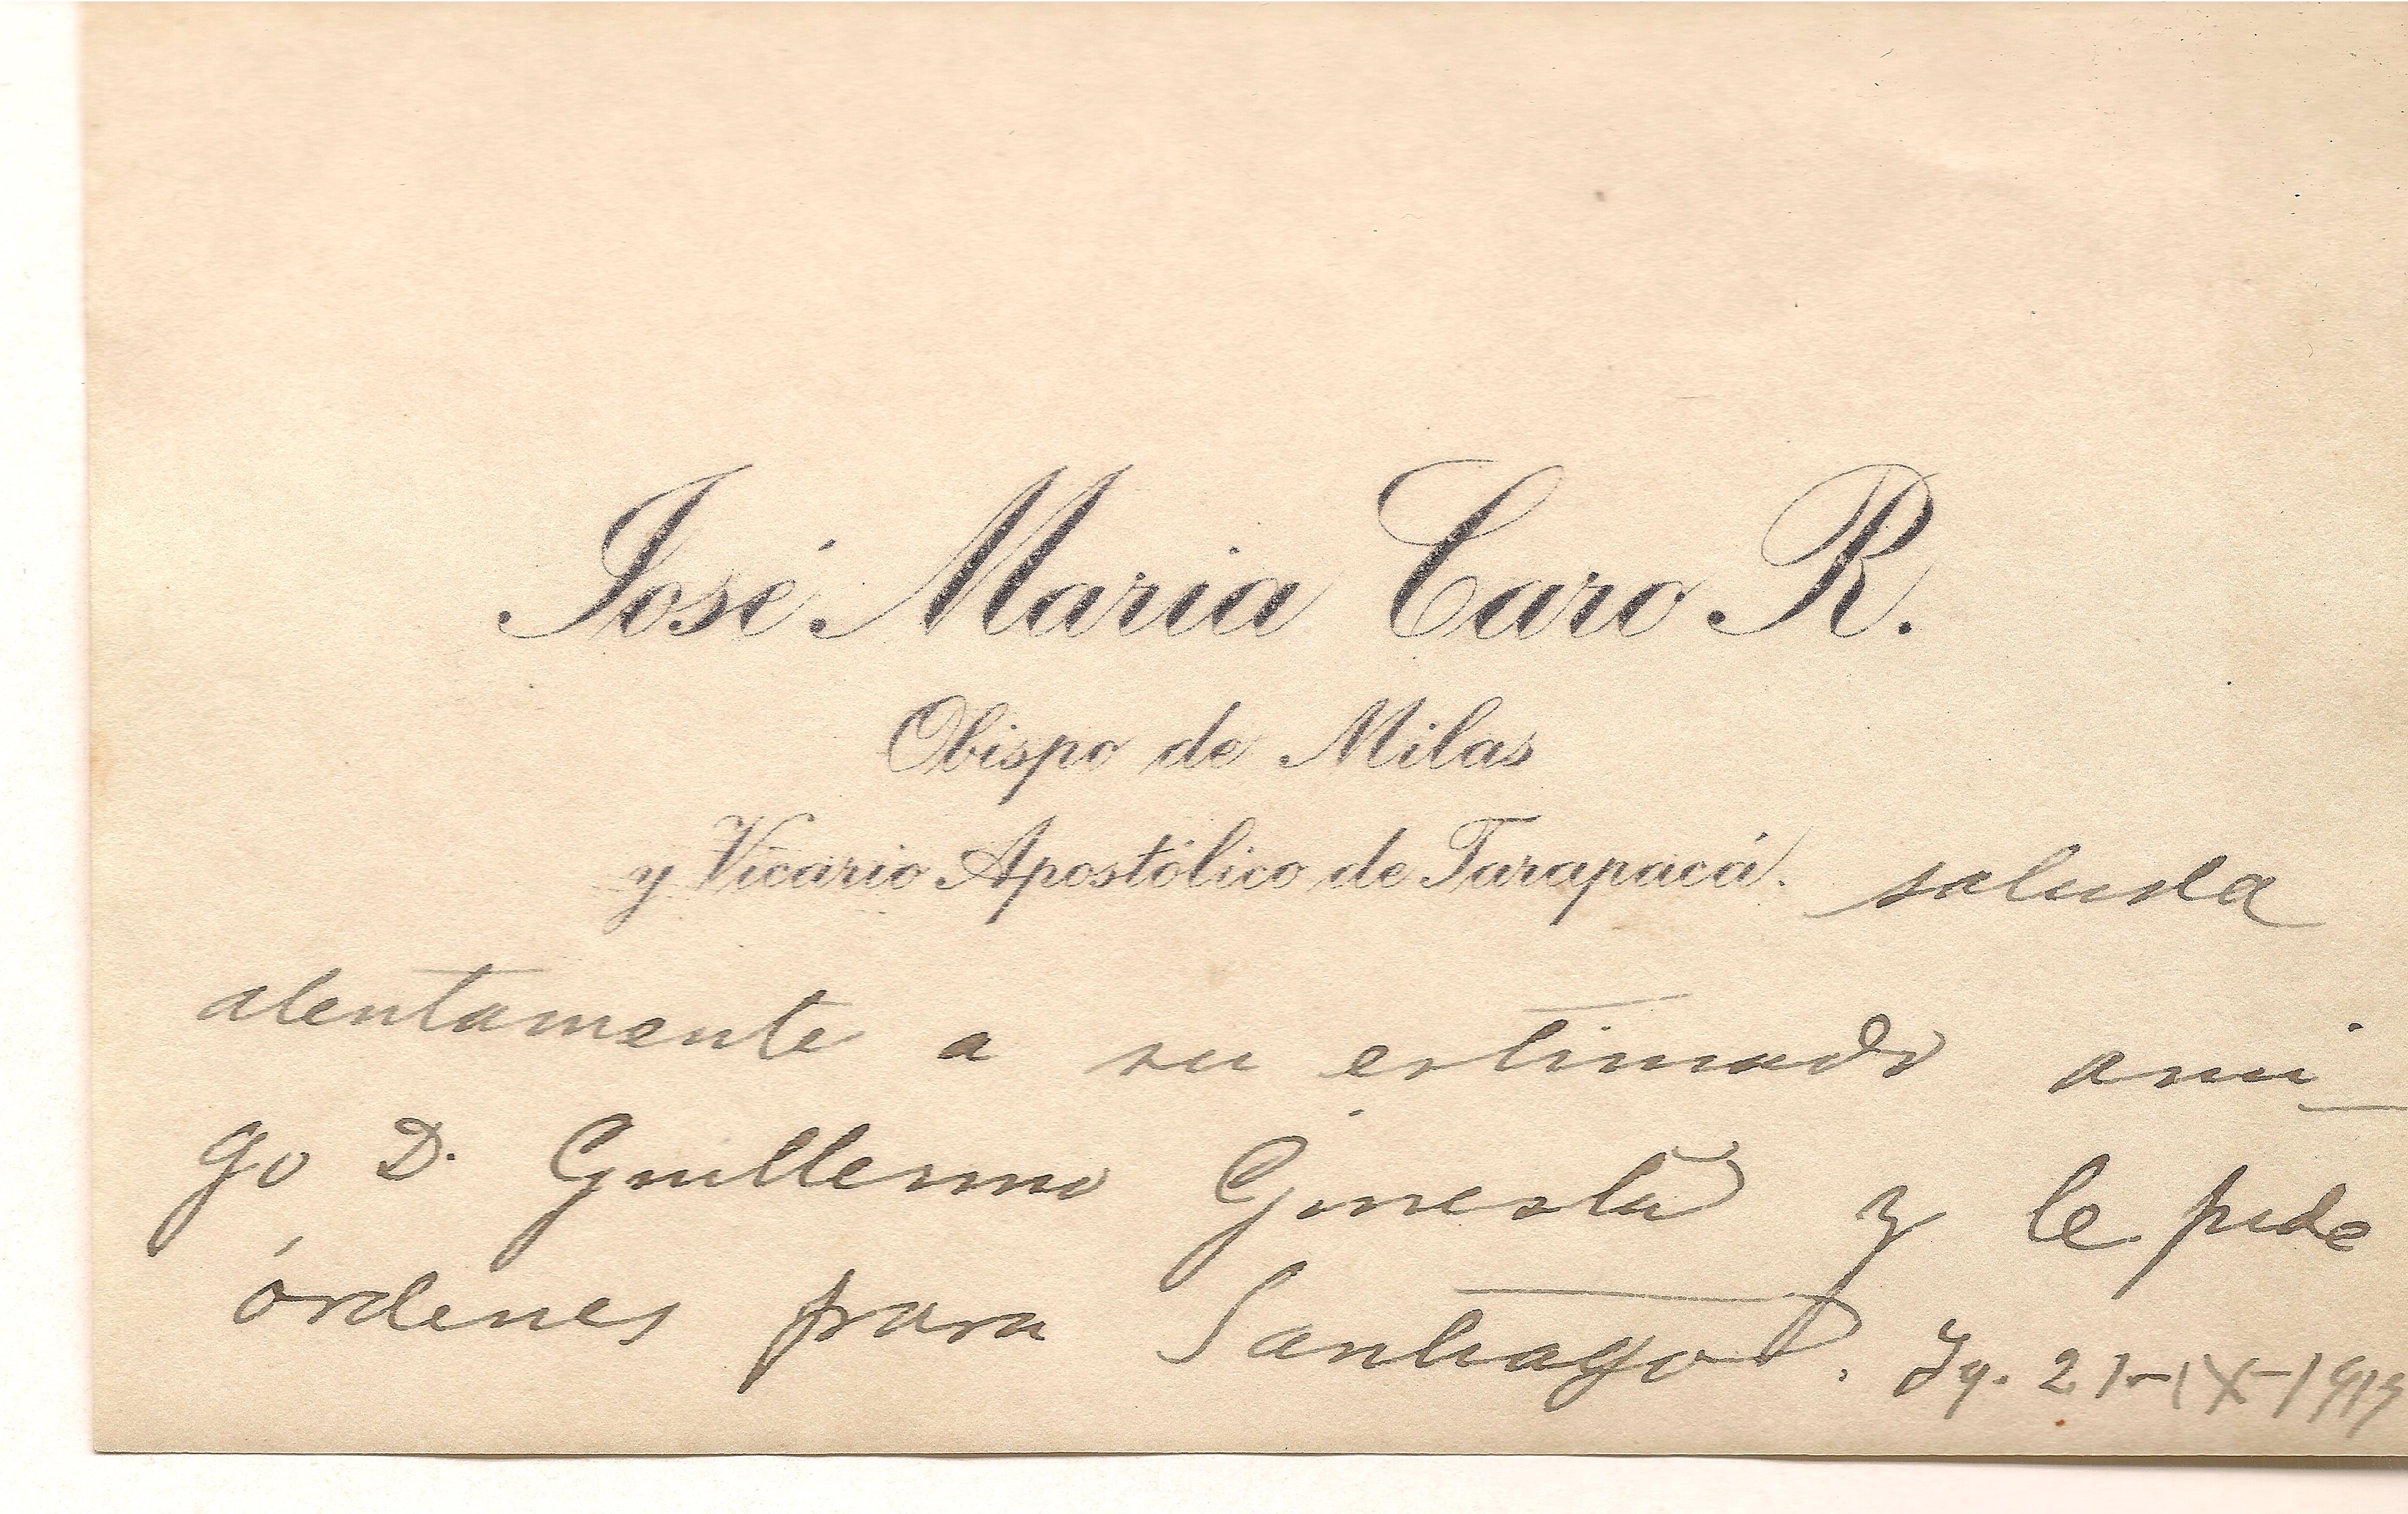 José Maria Caro R.
Obispo de Milas
y Vicario Apostólico de Tarapacá. saluda
atentamente a su estimado ami_
go D. Guillermo Ginesta y le pide
órdenes para Santiago. Iq. 21-IX-1919